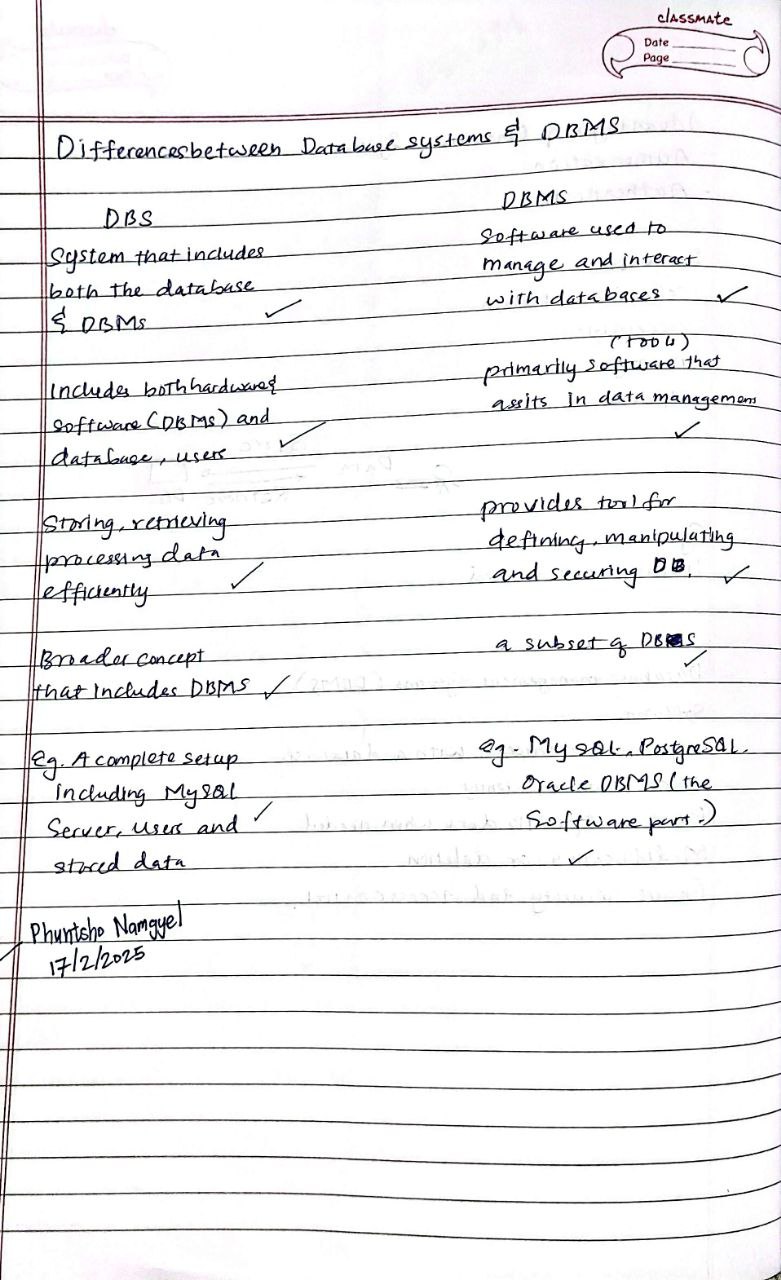 classmate
Date
Page
Differences between Database systems & DBMS
DBS
System that includes
both the database
& DBMS
DBMS
Software used to
manage and interact
with databases
Includes both hardware &
software (DBMS) and
database, users
(tools)
primarily software that
assits in data managemen
Storing, retrieving
processing data
efficiently
provides tool for
defining, manipulating
and securing DB.
Broader concept
that includes DBMS
a subset of DBS
Eg. A complete setup
including MySQL
Server, Users and
stored data
eg. MySQL, PostgreSQL.
Oracle DBMS (the
Software part.)
Phuntsho Namgyel
17/2/2025